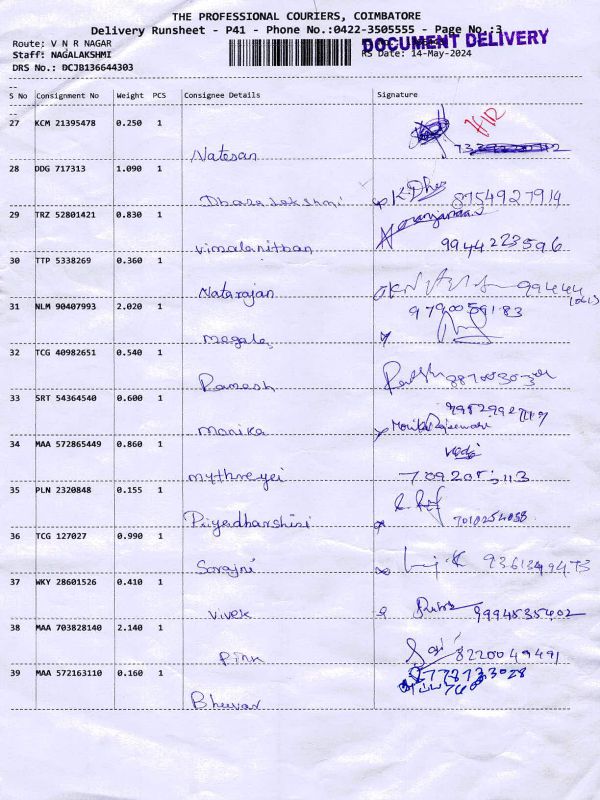 THE PROFESSIONAL COURIERS, COIMBATORE
Delivery Runsheet - P41 - Phone No.:0422-3505555 - Page No.:3
DOCUMENT DELIVERY
Route: V N R NAGAR
Staff: NAGALAKSHMI
RS Date: 14-May-2024
DRS No.: DCJB136644303
S No Consignment No Weight PCS Consignee Details Signature
27 KCM 21395478 0.250 1
Natesan
28 DDG 717313 1.090 1
Dhanalakshmi K.Dha 8754927914
29 TRZ 52801421 0.830 1
Vimalanithan 9944223596
30 TTP 5338269 0.360 1
Natarajan 99444
31 NLM 90407993 2.020 1 9790059183
Megala
32 TCG 40982651 0.540 1
Ramesh
33 SRT 54364540 0.600 1
Monika
34 MAA 572865449 0.860 1
Mythreyei
35 PLN 2320848 0.155 1
Priyadharshini 7010254058
36 TCG 127027 0.990 1
Sarojni 9361349473
37 WKY 28601526 0.410 1
Vivek 9994535402
38 MAA 703828140 2.140 1
8220049491
39 MAA 572163110 0.160 1 8778733028